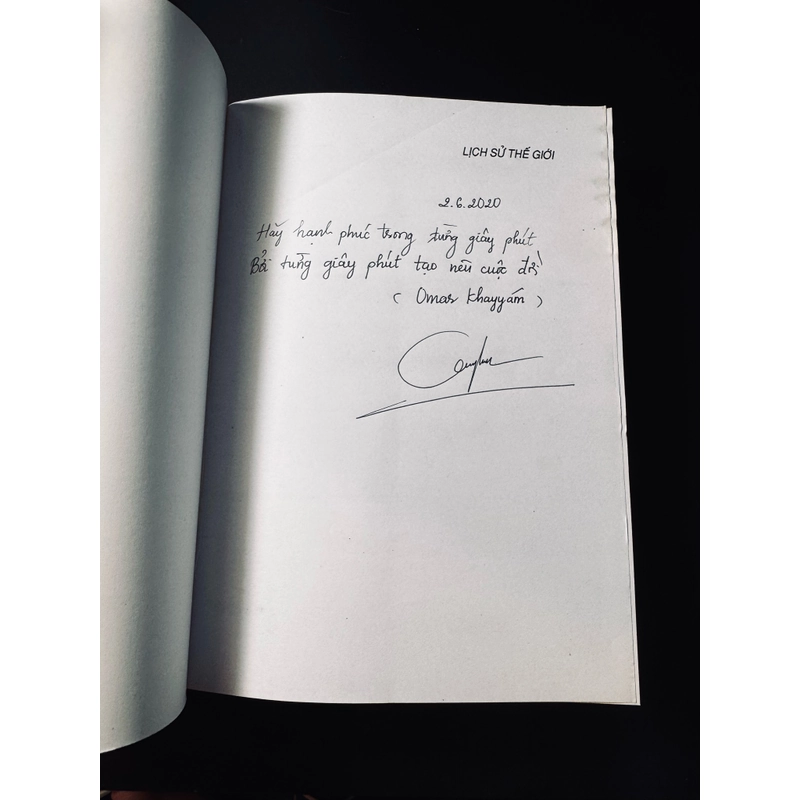 LỊCH SỬ THẾ GIỚI
2.6.2020
Hãy hạnh phúc trong từng giây phút
Bởi từng giây phút tạo nên cuộc đời
( Omar Khayyám )